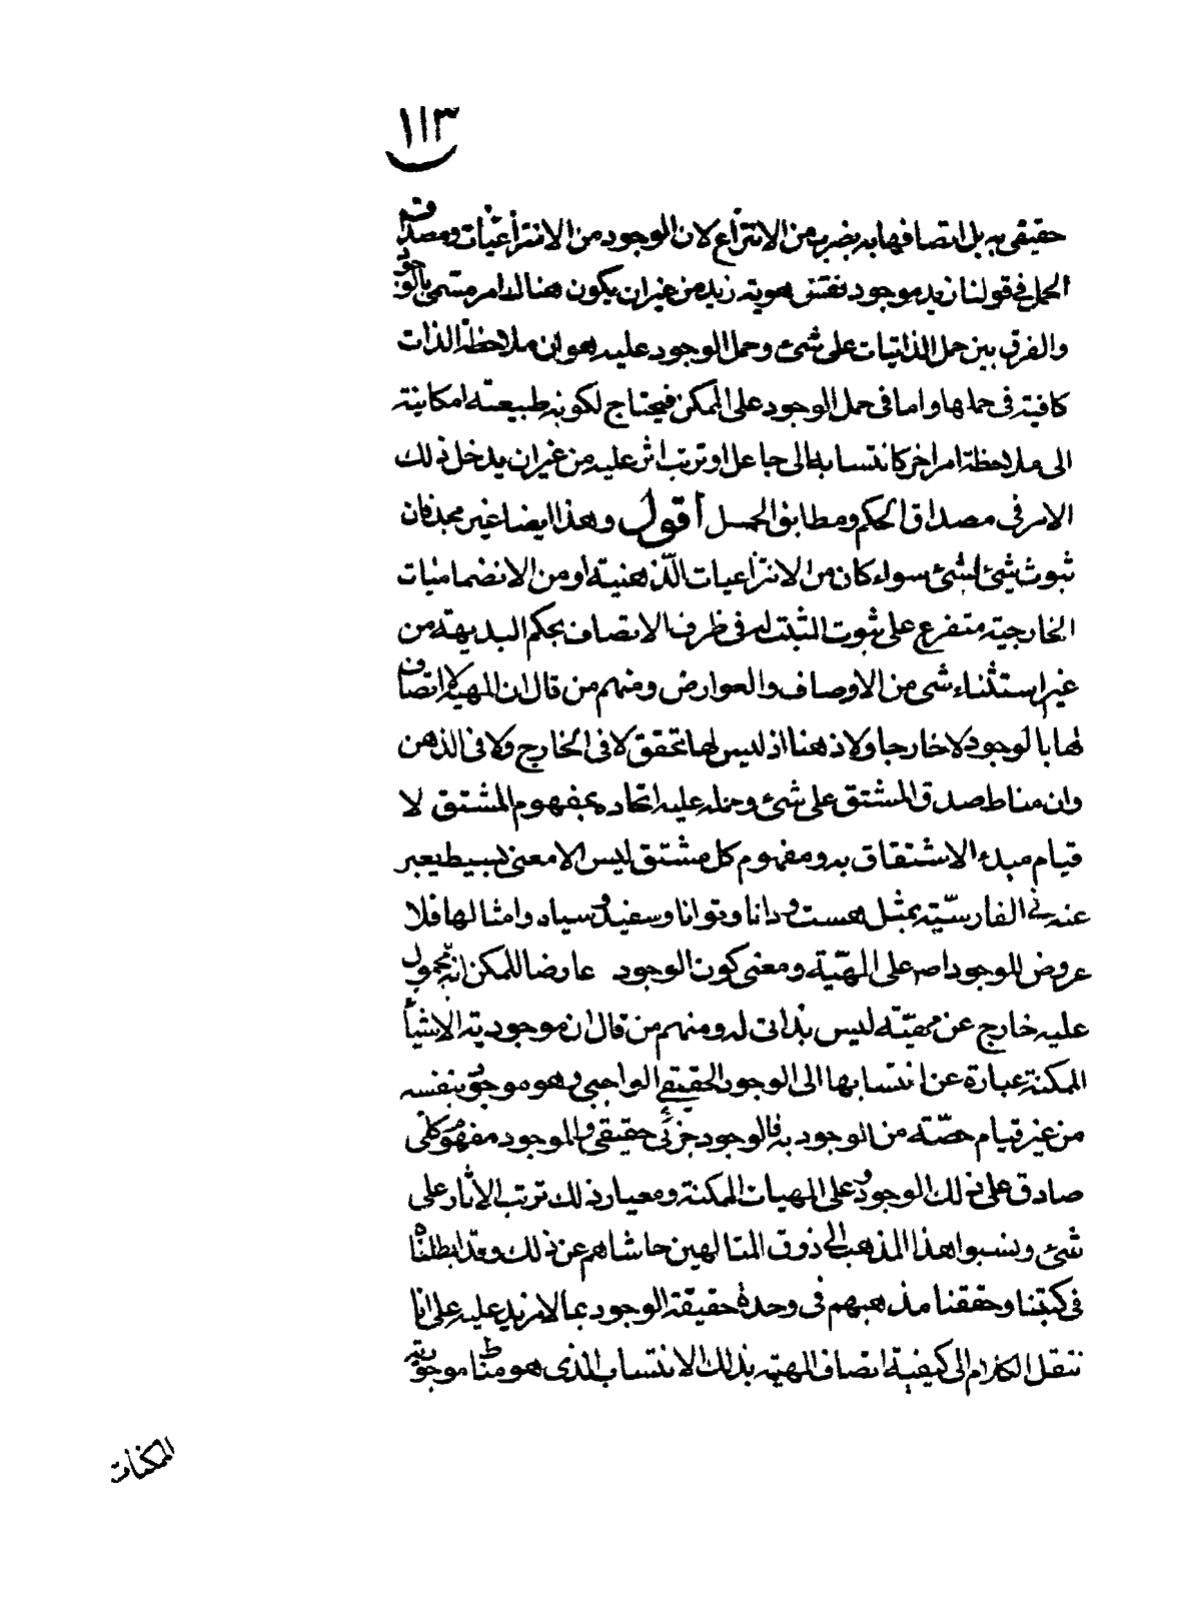 ١١٣
حقيقى به بل اتصافها به بضرب من الانتزاع لان الوجود من الانتزاعيات ومصداق
الحمل في قولنا زيد موجود نفس هوية زيد من غير ان يكون هناك امر مسمى بالوجود
والفرق بين حمل الذاتيات على شئ وحمل الوجود عليه هو ان ملاحظة الذات
كافية فى حملها واما فى حمل الوجود على الممكن فيحتاج لكونه طبيعة امكانية
الى ملاحظة امر اخر كانتسابه الى جاعل او ترتب اثر عليه من غير ان يدخل ذلك
الامر فى مصداق الحكم ومطابق الحمل أقول وهذا ايضا غير مجد فان
ثبوت شئ لشئ سواء كان من الانتزاعيات الذهنية او من الانضماميات
الخارجية متفرع على ثبوت المثبت له فى ظرف الاتصاف بحكم البديهة من
غير استثناء شى من الاوصاف والعوارض ومنهم من قال ان المهية لا اتصاف
لها بالوجود لا خارجا ولا ذهنا اذ ليس لها تحقق لا فى الخارج ولا فى الذهن
وان مناط صدق المشتق على شئ وحمله عليه اتحاده بمفهوم المشتق لا
قيام مبدء الاشتقاق به ومفهوم كل مشتق ليس الا معنى بسيط يعبر
عنه في الفارسيّة بمثل هست ودانا وتوانا وسفيد وسياه وامثالها فلا
عروض للوجود اصلا على المهيّة ومعنى كون الوجود عارضا للممكن انه محمول
عليه خارج عن مهيّته ليس بذاتى له ومنهم من قال ان موجودية الاشياء
الممكنة عبارة عن انتسابها الى الوجود الحقيقي الواجبى وهو موجود بنفسه
من غير قيام حصّة من الوجود به فالوجود جزئى حقيقى والموجود مفهوم كلى
صادق على ذلك الوجود وعلى المهيات الممكنة ومعيار ذلك ترتب الاثار على
شئ ونسبوا هذا المذهب الى ذوق المتالهين حاشاهم عن ذلك وقد ابطلناه
فى كتبنا وحققنا مذهبهم فى وحدة حقيقة الوجود بما لا مزيد عليه على انا
ننقل الكلام الى كيفية اتصاف المهية بذلك الانتساب الذى هو مناط موجودية
الممكنات